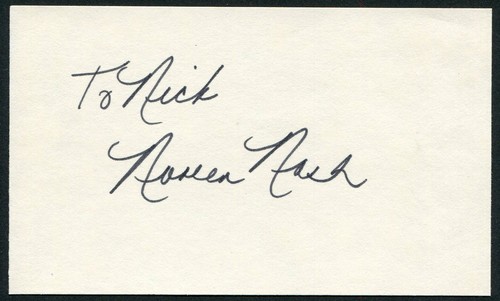 To Nick
Noreen Nash